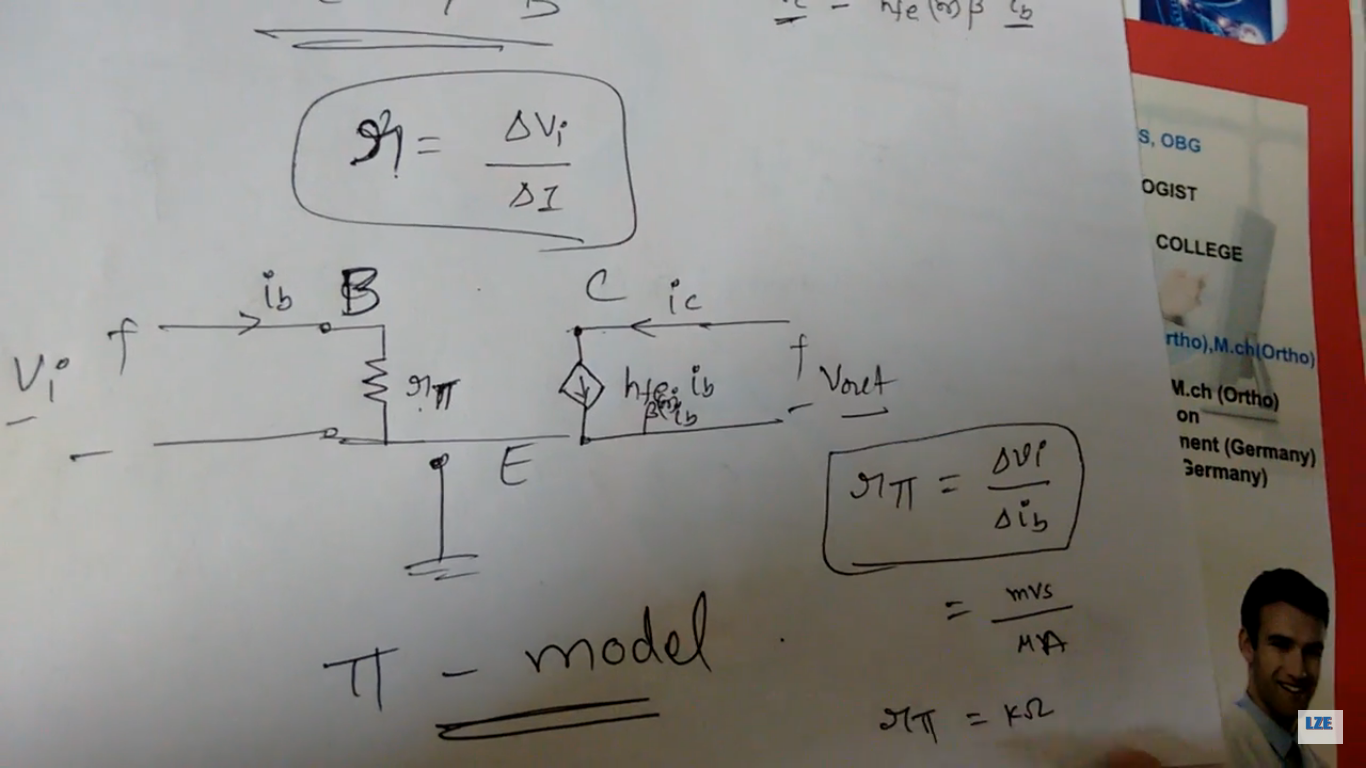 hfe (or) β ib
r = ΔVi / ΔI
ib B C ic
+ +
Vi rπ hfe. ib Vout
β(or) ib
- -
E
rπ = ΔVi / Δib
= mVs / μA
π - model
rπ = KΩ
S, OBG
OGIST
COLLEGE
rtho),M.ch(Ortho)
M.ch (Ortho)
on
nent (Germany)
Germany)
LZE